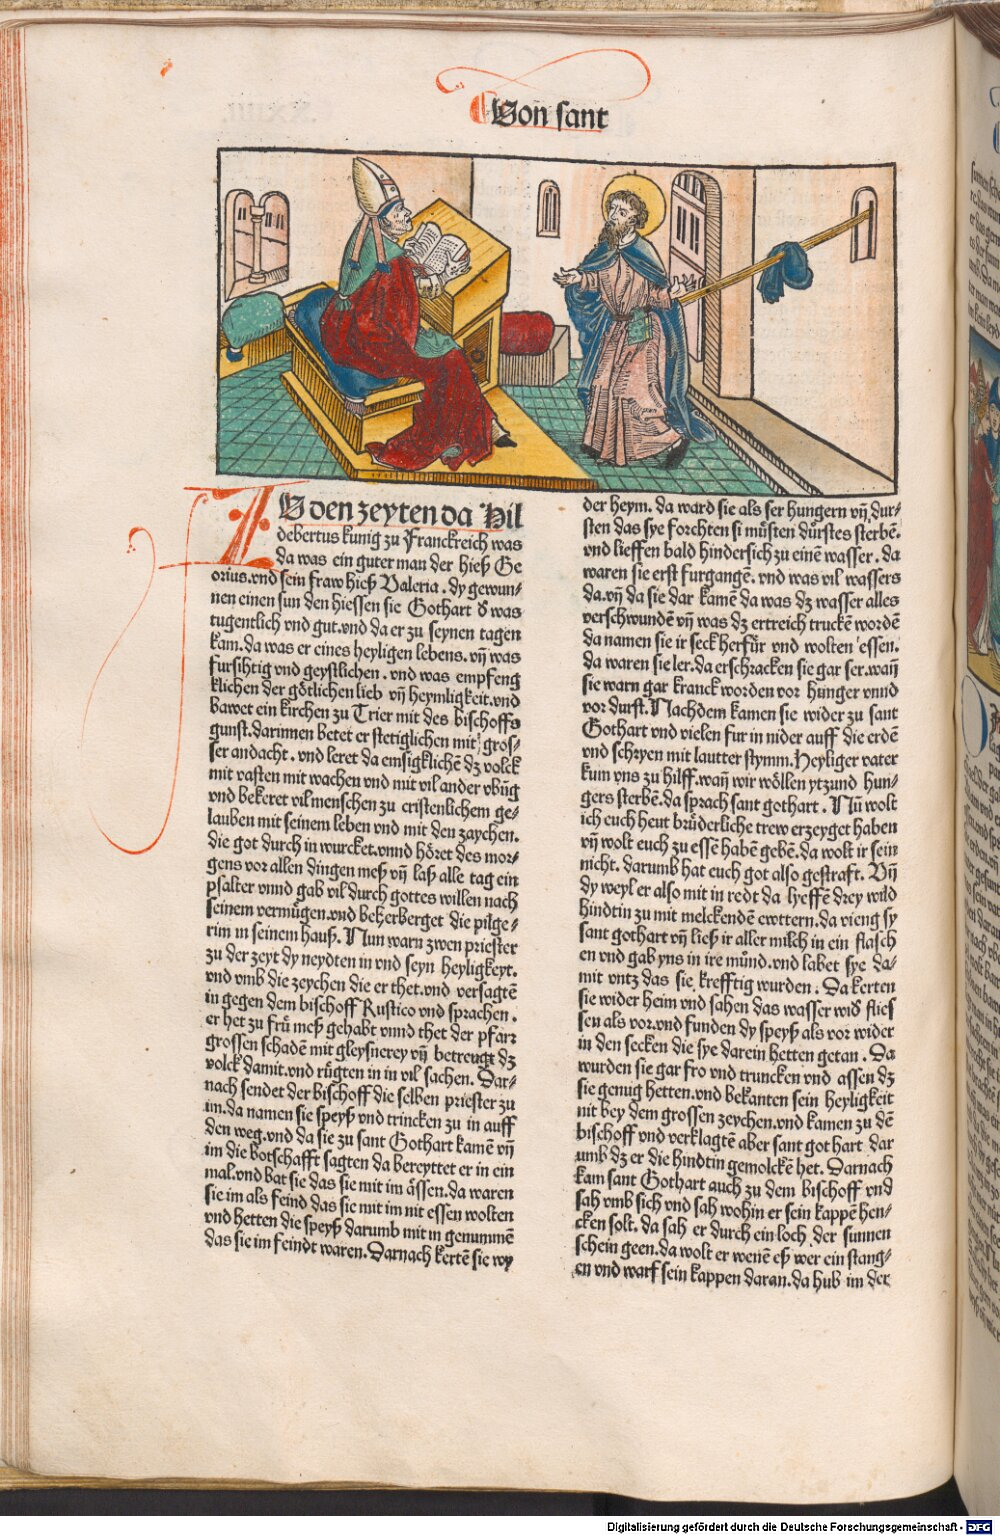 Von sant
ZU den zeyten da Hil
debertus kunig zu Franckreich was
da was ein guter man der hieß Ge
orius.vnd sein fraw hieß Valeria. dy gewun⸗
nen einen sun den hiessen sie Gothart d̕ was
tugentlich vnd gut.vnd da er zu seynen tagen
kam.da was er eines heyligen lebens. vñ was
fursihtig vnd geystlichen. vnd was empfeng
klichen der götlichen lieb vñ heymligkeit.vnd
bawet ein kirchen zu Trier mit des bischoffs
gunst.darinnen betet er stetiglichen mit gros⸗
ser andacht. vnd leret da emsigklichen dz volck
mit vasten mit wachen vnd mit vil ander vbũg
vnd bekeret vil menschen zu cristenlichem ge⸗
lauben mit seinem leben vnd mit den zaychen.
die got durch in wurcket.vnnd höret des mor⸗
gens vor allen dingen meß vñ laß alle tag ein
psalter vnnd gab vil durch gottes willen nach
seinem vermügen.vnd beherberget die pilge⸗
rim in seinem hauß. Nun warn zwen priester
zu der zeyt dy neydten in vnd seyn heyligkeyt.
vnd vmb die zeychen die er thet.vnd versagtē
in gegen dem bischoff Rustico vnd sprachen.
er het zu frü meß gehabt vnnd thet der pfarr
grossen schadē mit gleysnerey vñ betreugt dz
volck damit.vnd rügten in in vil sachen. Dar⸗
nach sendet der bischoff die selben priester zu
im.da namen sie speyß vnd trincken zu in auff
den weg.vnd da sie zu sant Gothart kamē vñ
im die botschafft sagten da bereyttet er in ein
mal.vnd bat sie das sie mit im ässen.da waren
sie im als feind das sie mit im nit essen wolten
vnd hetten die speyß darumb mit in genummē
das sie im feindt waren. Darnach kertē sie wy
der heym. da ward sie als ser hungern vñ dur⸗
sten das sye forchten si müsten dürstes sterbē.
vnd lieffen bald hindersich zu einē wasser. da
waren sie erst furgangē. vnd was vil wassers
da.vñ da sie dar kamē da was dz wasser alles
verschwundē vñ was dz ertreich truckē wordē
da namen sie ir seck herfür vnd wolten essen.
da waren sie ler.da erschracken sie gar ser.wañ
sie warn gar kranck worden vor hunger vnnd
vor durst. Nachdem kamen sie wider zu sant
Gothart vnd vielen fur in nider auff die erdē
vnd schryen mit lautter stymm. Heyliger vater
kum vns zu hilff.wañ wir wöllen ytzund hun⸗
gers sterbē.da sprach sant gothart. Nũ wolt
ich euch heut brüderliche trew erzeyget haben
vñ wolt euch zu essē habē gebē.da wolt ir sein
nicht. darumb hat euch got also gestraft. Vñ
dy weyl er also mit in redt da lyeffē drey wild
hindtin zu mit melckendē ewttern.da vieng sy
sant gothart vñ ließ ir aller milch in ein flasch
en vnd gab yns in ire mũnd.vnd labet sye da⸗
mit vntz das sie krefftig wurden. Da kerten
sie wider heim vnd sahen das wasser wid̕ flies
sen als vor.vnd funden dy speyß als vor wider
in den secken die sye darein hetten getan. Da
wurden sie gar fro vnd truncken vnd assen dz
sie genug hetten.vnd bekanten sein heyligkeit
nit bey dem grossen zeychen.vnd kamen zu dē
bischoff vnd verklagtē aber sant got hart dar
umb dz er die hindtin gemolckē het. Darnach
kam sant Gothart auch zu dem bischoff vnd
sah vmb sich vnd sah wohin er sein kappē hen⸗
cken solt. da sah er durch ein loch der sunnen
schein geen.da wolt er wenē eß wer ein stang⸗
en vnd warf sein kappen daran.da hub im der
Digitalisierung gefördert durch die Deutsche Forschungsgemeinschaft - DFG